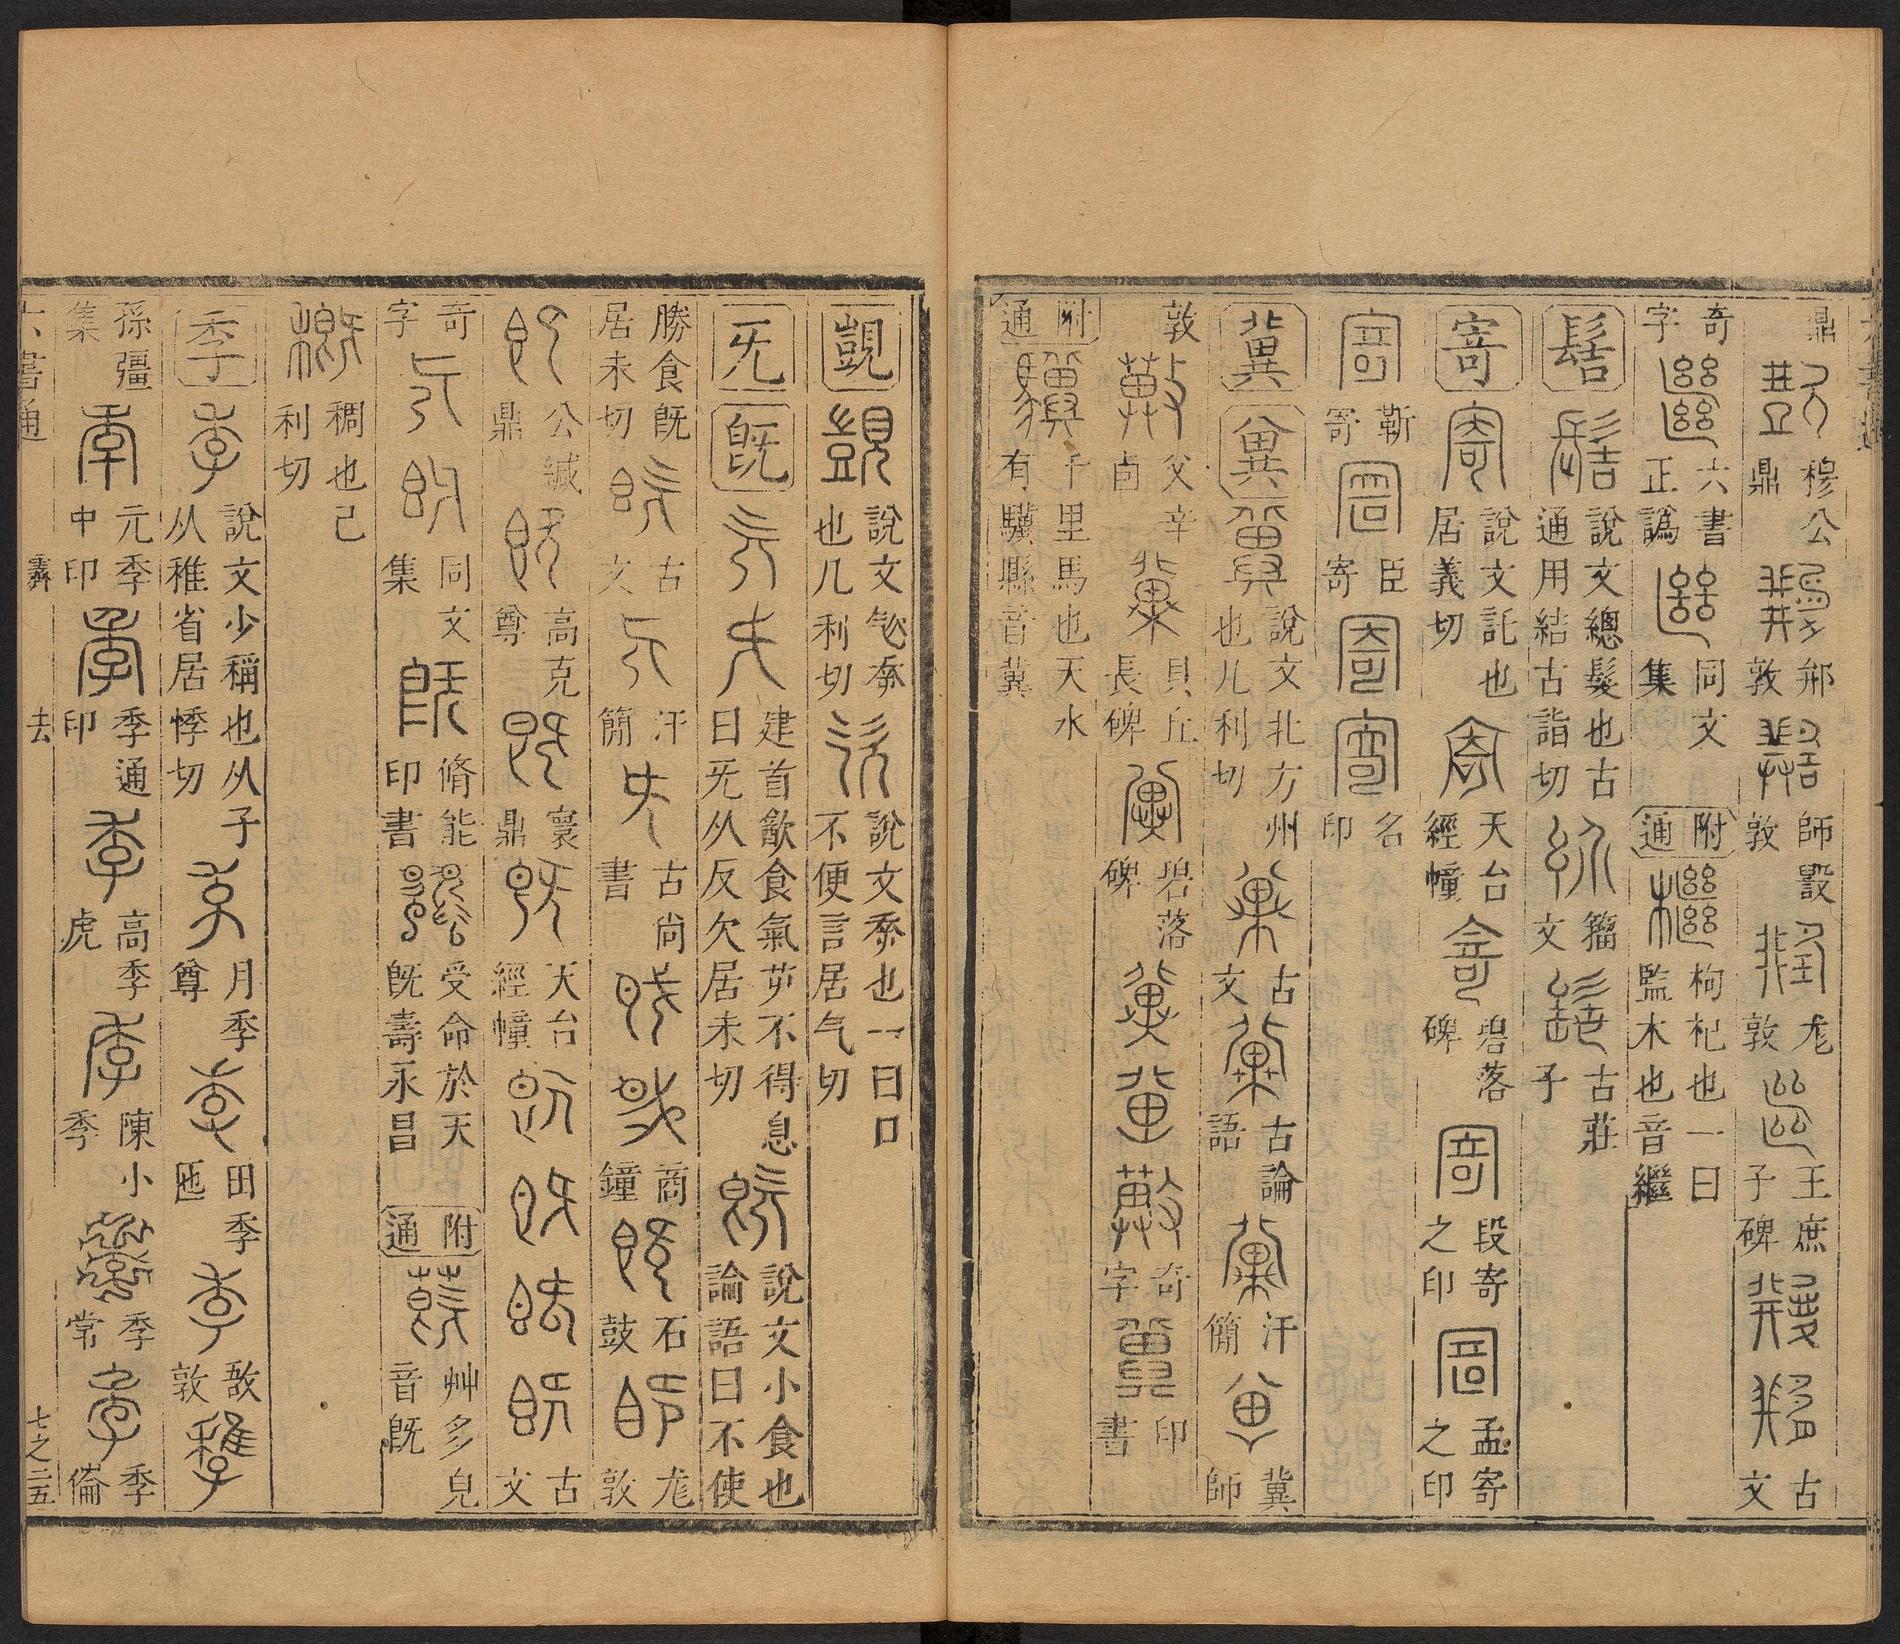 鼎 穆公鼎 邢敦 師㝨敦 尨敦 王庶子碑 古文
奇字 六書正譌 同文集 附通 枸杞也一曰監木也音繼
髻 說文總髮也古通用結古詣切 籀文 古莊子
寄 說文託也居義切 天台經幢 碧落碑 段寄之印 孟寄之印
靳寄 臣寄 名印
冀 兾 說文北方州也几利切 古文 古論語 汗簡 冀師
敦 父辛卣 貝丘長碑 碧落碑 奇字 印書
附通 千里馬也天水有驥縣音冀
覬 說文㰟㚔也几利切 說文㚔也一曰口不便言居气切
旡 旣 建首㱃食氣屰不得息曰旡从反欠居未切 說文小食也論語曰不使
勝食旣居未切 古文 汗簡 古尚書 商鐘 石鼓 尨敦
公緘鼎 高克尊 寰鼎 天台經幢 古文
奇字 同文集 脩能印書 受命於天旣壽永昌 附通 艸多皃音旣
稠也己利切
季 說文少稱也从子从稚省居悸切 月季尊 田季匜 敔敦
孫彊集 元季中印 季通印 高季虎 陳小季 季常 季倫
六書通 霽 去 七之二五